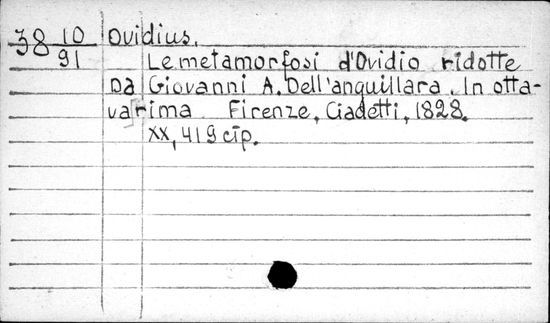 38 10/91 Ovidius.
Le metamorfosi d'Ovidio ridotte
Da Giovanni A. Dell'anguillara. In otta-
va rima Firenze, Ciadetti, 1828.
XX, 419 cтр.